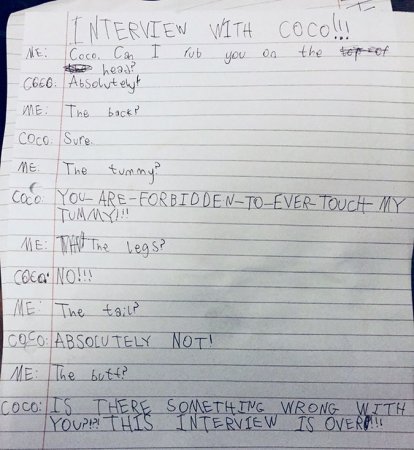 INTERVIEW WITH COCO!!!
ME: Coco. Can I rub you on the top of
head?
COCO: Absolutely!
ME: The back?
COCO: Sure.
ME: The tummy?
COCO: YOU-ARE-FORBIDDEN-TO-EVER-TOUCH-MY
TUMMY!!!
ME: The legs?
COCO: NO!!!
ME: The tail?
COCO: ABSOLUTELY NOT!
ME: The butt?
COCO: IS THERE SOMETHING WRONG WITH
YOU?!?! THIS INTERVIEW IS OVER!!!